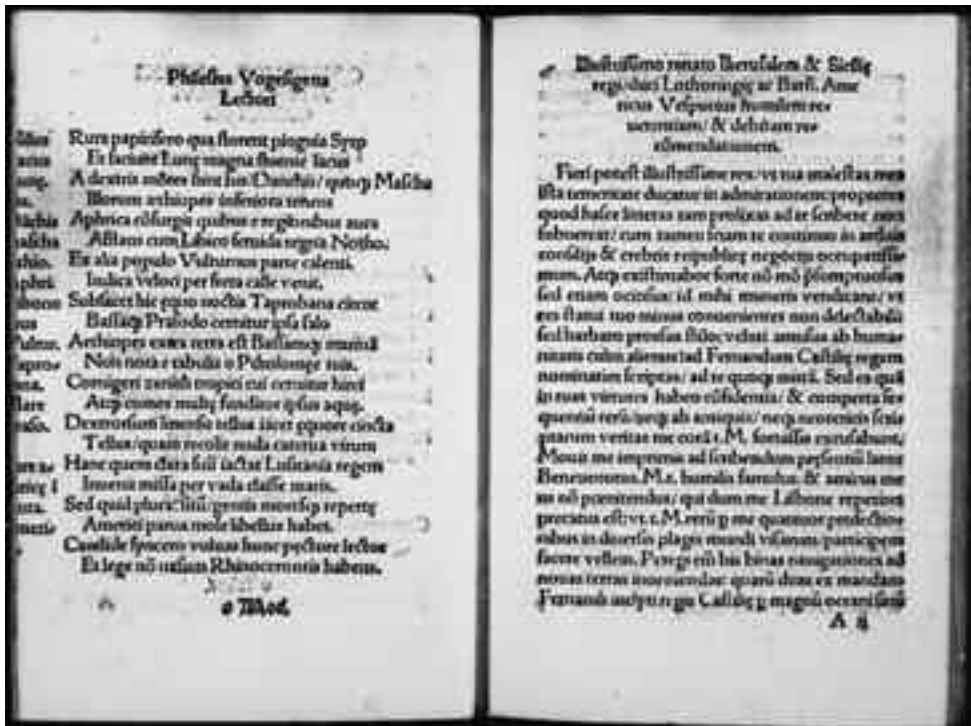 Philesius Vogesigena
Lectori
Rura papirifero qua florent pinguia Syro
Et faciunt Lunę magna fluenta lacus
A dextris mōtes sunt Ius/Danchis/quoqȝ Mascha
Illorum æthiopes inferiora tenent
Aphrica cōsurgit quibus e regionibus aura
Afflans cum Libico feruida regna Notho.
Ex alia populo Vulturnus parte calenti.
Indica veloci per freta calle venit.
Subiacet hic ęquo noctis Taprobana circo
Bassaqȝ Prasodo cernitur ipsa salo
Aethiopes extra terra est Bassamqȝ maritā
Non nota e tabulis o Ptholomęe tuis.
Cornigeri zenith tropici cui cernitur hirci
Atqȝ comes multę funditur ipsus aquę.
Dextrorsum immenso tellus iacet ęquore cincta
Tellus/quam recolit nuda caterua virum
Hanc quem clara suū iactat Lusitania regem
Inuenit missa per vada classe maris.
Sed quid plura: sitū/gentis moresqȝ repertę
Americi parua mole libellus habet.
Candide syncero voluas hunc pectore lector
Et lege nō nasum Rhinocerontis habens.
Illustrissimo renato Iherusalem & Sicilię
regi/duci Lothoringię ac Barñ. Ame
ricus Vesputius humilem re
uerentiam/& debitam re
cōmendationem.
Fieri potest illustrissime rex/vt tua maiestas mea
ista temeritate ducatur in admirationem: propterea
quod hasce litteras tam prolixas ad te scribere non
subuerear/cum tamen sciam te continuo in arduis
consilijs & crebris reipublicę negocijs occupatissi
mum. Atqȝ existimabor forte nō mō p̄sumptuosus
sed etiam ociosus: id mihi muneris vendicans/vt
res statui tuo minus conuenientes non delectabili
sed barbaro prorsus stilo veluti amusus ab huma
nitatis cultu alienus ad Fernandum Castilię regem
nominatim scriptas/ad te quoqȝ mittā. Sed ea quā
in tuas virtutes habeo cōfidentia/& comperta se
quentiū rerū/neqȝ ab antiquis/neqȝ neotericis scri
ptarum veritas me corā t.M. fortassis excusabunt.
Mouit me imprimis ad scribendum pręsentiū lator
Benuenutus.M.t. humilis famulus/& amicus me
us nō pœnitendus/qui dum me Lisbone reperiret
precatus est: vt t.M.rerū p me quattuor profectioni
nibus in diuersis plagis mundi visarum/participem
facere vellem. Peregi em̄ bis binas nauigationes ad
nouas terras inueniendas: quarū duas ex mandato
Fernandi inclyti regis Castilię p magnū oceani sinū
A ij